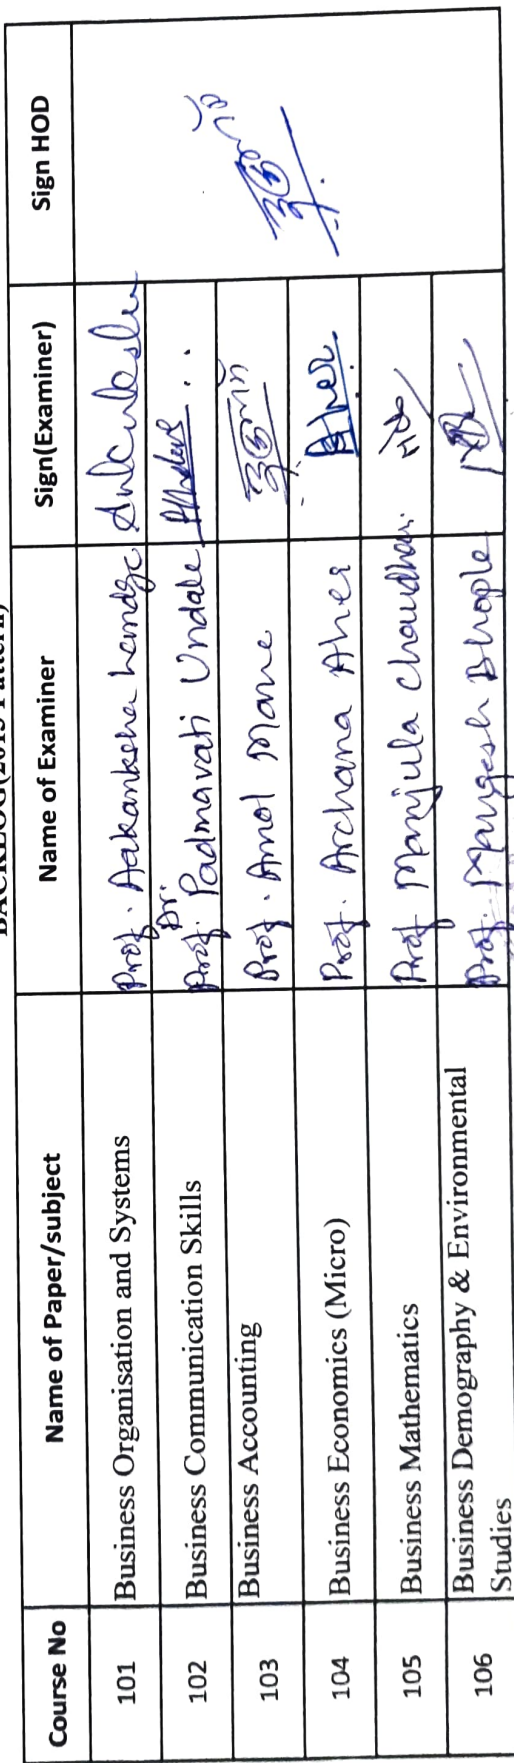 BACKLOG(2013 Pattern)
Course No Name of Paper/subject Name of Examiner Sign(Examiner) Sign HOD
101 Business Organisation and Systems Prof. Aakanksha
102 Business Communication Skills Prof. Dr. Padmavati Undale
103 Business Accounting Prof. Amol Mane
104 Business Economics (Micro) Prof. Archana Aher Aher
105 Business Mathematics Prof Manjula Chaudhari
106 Business Demography & Environmental Prof. Mangesh Bhople
Studies